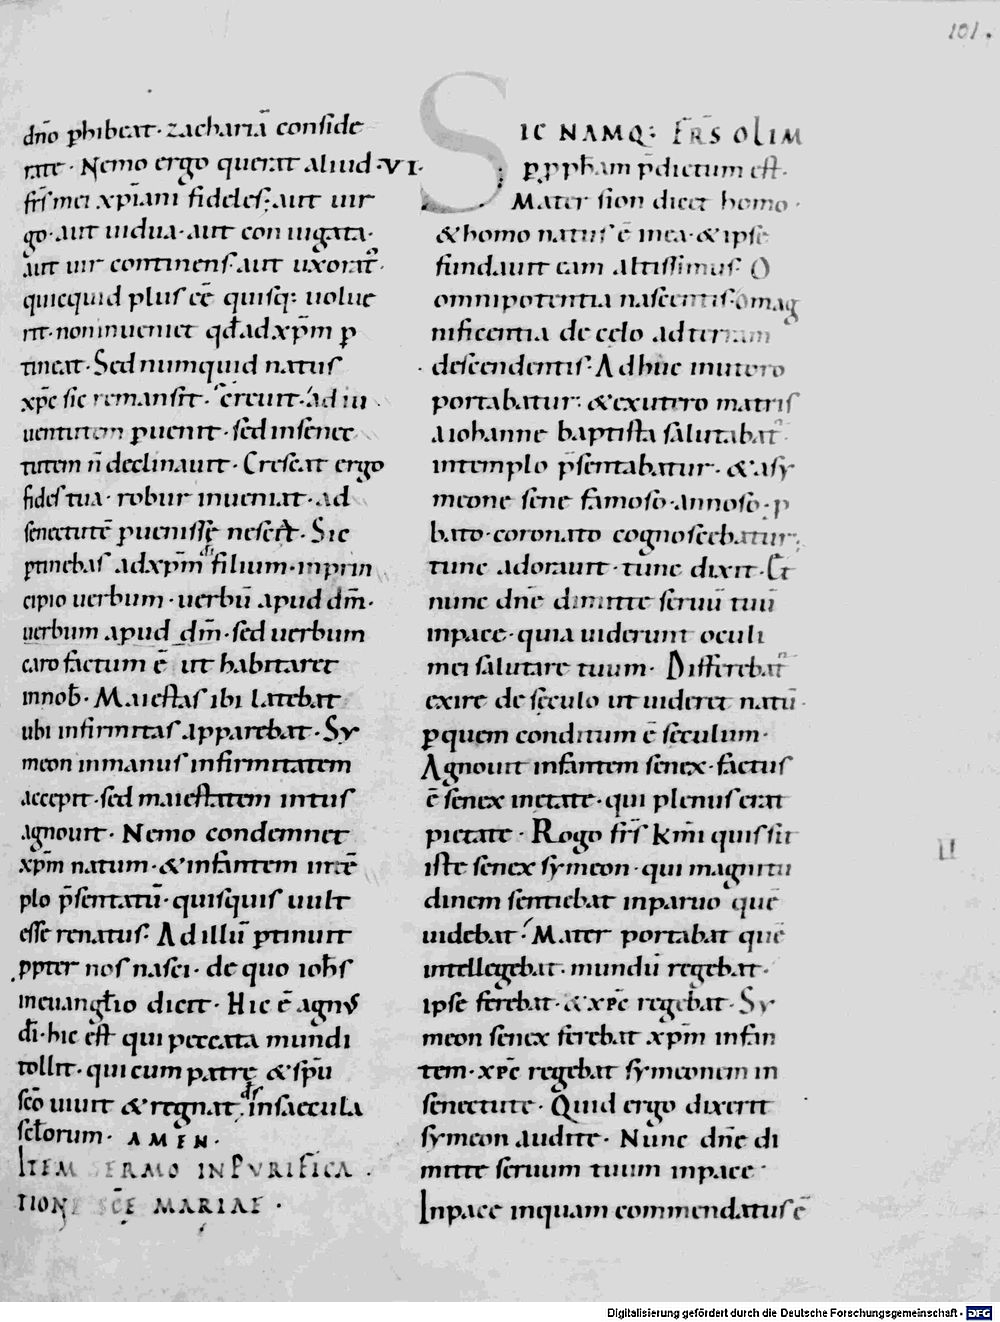 101.
dño ꝓhibeat· zachariã conside
rate· Nemo ergo querat aliud· VI·
fr̃s mei xp̃iani fideles; aut uir
go· aut uidua· aut coniugata·
aut uir continens· aut uxorat᷑·
quicquid plus eẽ quisq; uolue
rit· non inueniet qđ ad xp̃m ꝑ
tineat· Sed numquid natus
xp̃c sic remansit· creuit· ad iu
uentutem ꝑuenit· sed in senec
tutem ñ declinauit· Crescat ergo
fides tua· robur inueniat· ad
senectutẽ ꝑuenisse nesciat· Sic
ꝑtinebas ad xp̃m di filium· in prin
cipio uerbum· uerbũ apud dm̃·
uerbum apud dm̃· sed uerbum
caro factum ẽ ut habitaret
in nob̃· Maiestas ibi latebat
ubi infirmitas apparebat· Sy
meon in manus infirmitatem
accepit· sed maiestatem intus
agnouit· Nemo condemnet
xp̃m natum· & infantem in tẽ
plo p̃sentatũ· quisquis uult
esse renatus· Ad illũ ꝑtinuit
ꝓpter nos nasci· de quo ioh̃s
in euangl̃io dicit· Hic ẽ agnus
dĩ· hic est qui peccata mundi
tollit· qui cum patre & sp̃u
sc̃o uiuit & regnat ds̃ in saecula
sc̃lorum· AMEN·
ITEM SERMO IN PVRIFICA
TIONE SCE MARIAE·
SIC NAMQ; FR̃S OLIM
ꝑ ꝓph̃am p̃dictum est·
Mater sion dicet homo·
& homo natus ẽ in ea· & ipse
fundauit eam altissimus· O
omnipotentia nascentis· o mag
nificentia de celo ad terram
descendentis· Adhuc in utero
portabatur· & ex utero matris
a iohanne baptista salutabat᷑·
in templo p̃sentabatur· & a sy
meone sene famoso· annoso· ꝓ
bato· coronato cognoscebatur·
tunc adorauit· tunc dixit· Et
nunc dñe dimitte seruũ tuũ
in pace· quia uiderunt oculi
mei salutare tuum· Differebat᷑
exire de seculo ut uideret natũ·
ꝑ quem conditum ẽ seculum·
Agnouit infantem senex· factus
ẽ senex in etate· qui plenus erat
pietate· Rogo fr̃s km̃i quis sit
iste senex symeon· qui magnitu
dinem sentiebat in paruo quẽ
uidebat· Mater portabat quẽ
intellegebat· mundũ regebat·
ipse ferebat· & xp̃c regebat· Sy
meon senex ferebat xp̃m infan
tem· xp̃c regebat symeonem in
senectute· Quid ergo dixerit
symeon audite· Nunc dñe di
mitte seruum tuum in pace·
In pace inquam commendatus ẽ
Digitalisierung gefördert durch die Deutsche Forschungsgemeinschaft - DFG